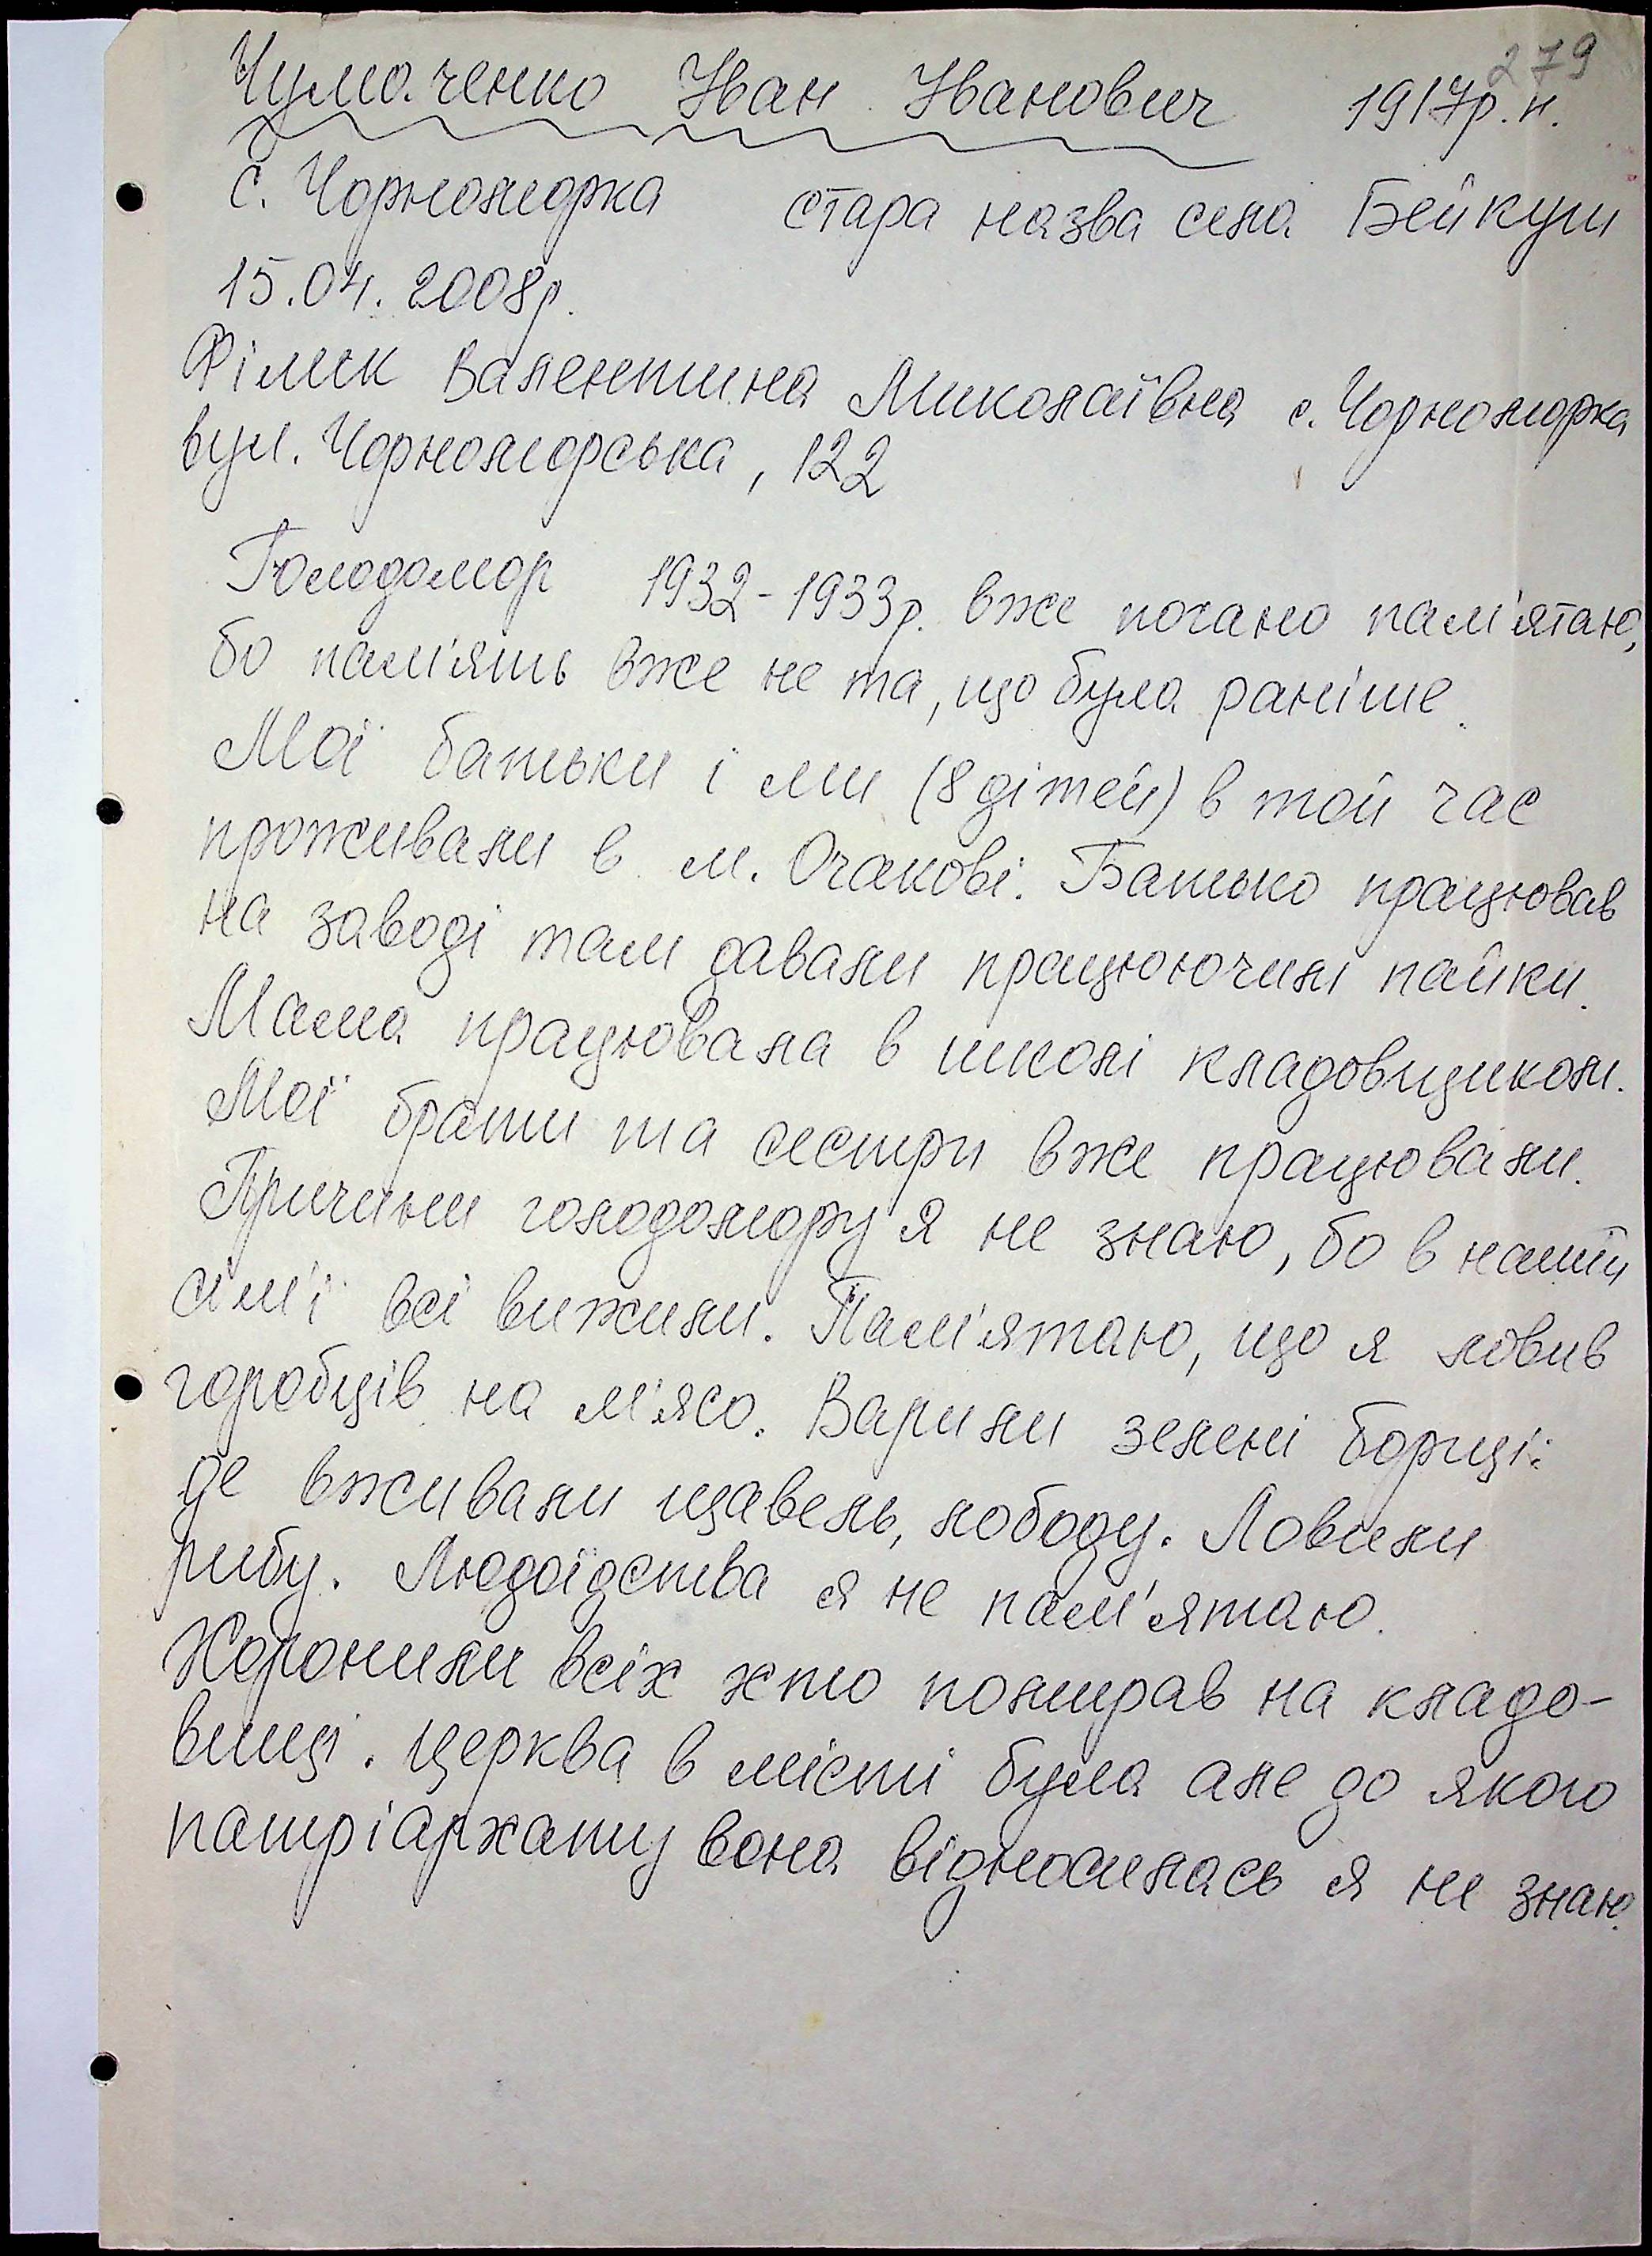 279
Чумаченко Іван Іванович 1917р.н.
с. Чорноморка стара назва села Бейкуш
15.04.2008р.
Філик Валентина Миколаївна с. Чорноморка
вул. Чорноморська, 122
Голодомор 1932-1933р. вже погано пам'ятаю,
бо пам'ять вже не та, що була раніше.
Мої батьки і ми (8 дітей) в той час
проживали в м. Очакові. Батько працював
на заводі там давали працюючим пайки.
Мама працювала в школі кладовщиком.
Мої брати та сестри вже працювали.
Причини голодомору я не знаю, бо в нашій
сім'ї всі вижили. Пам'ятаю, що я ловив
горобців на м'ясо. Варили зелені борщі:
де вживали щавель, лободу. Ловили
рибу. Людоїдства я не пам'ятаю.
Хоронили всіх хто помирав на кладо-
вищі. Церква в місті була але до якого
патріархату вона відносилась я не знаю.